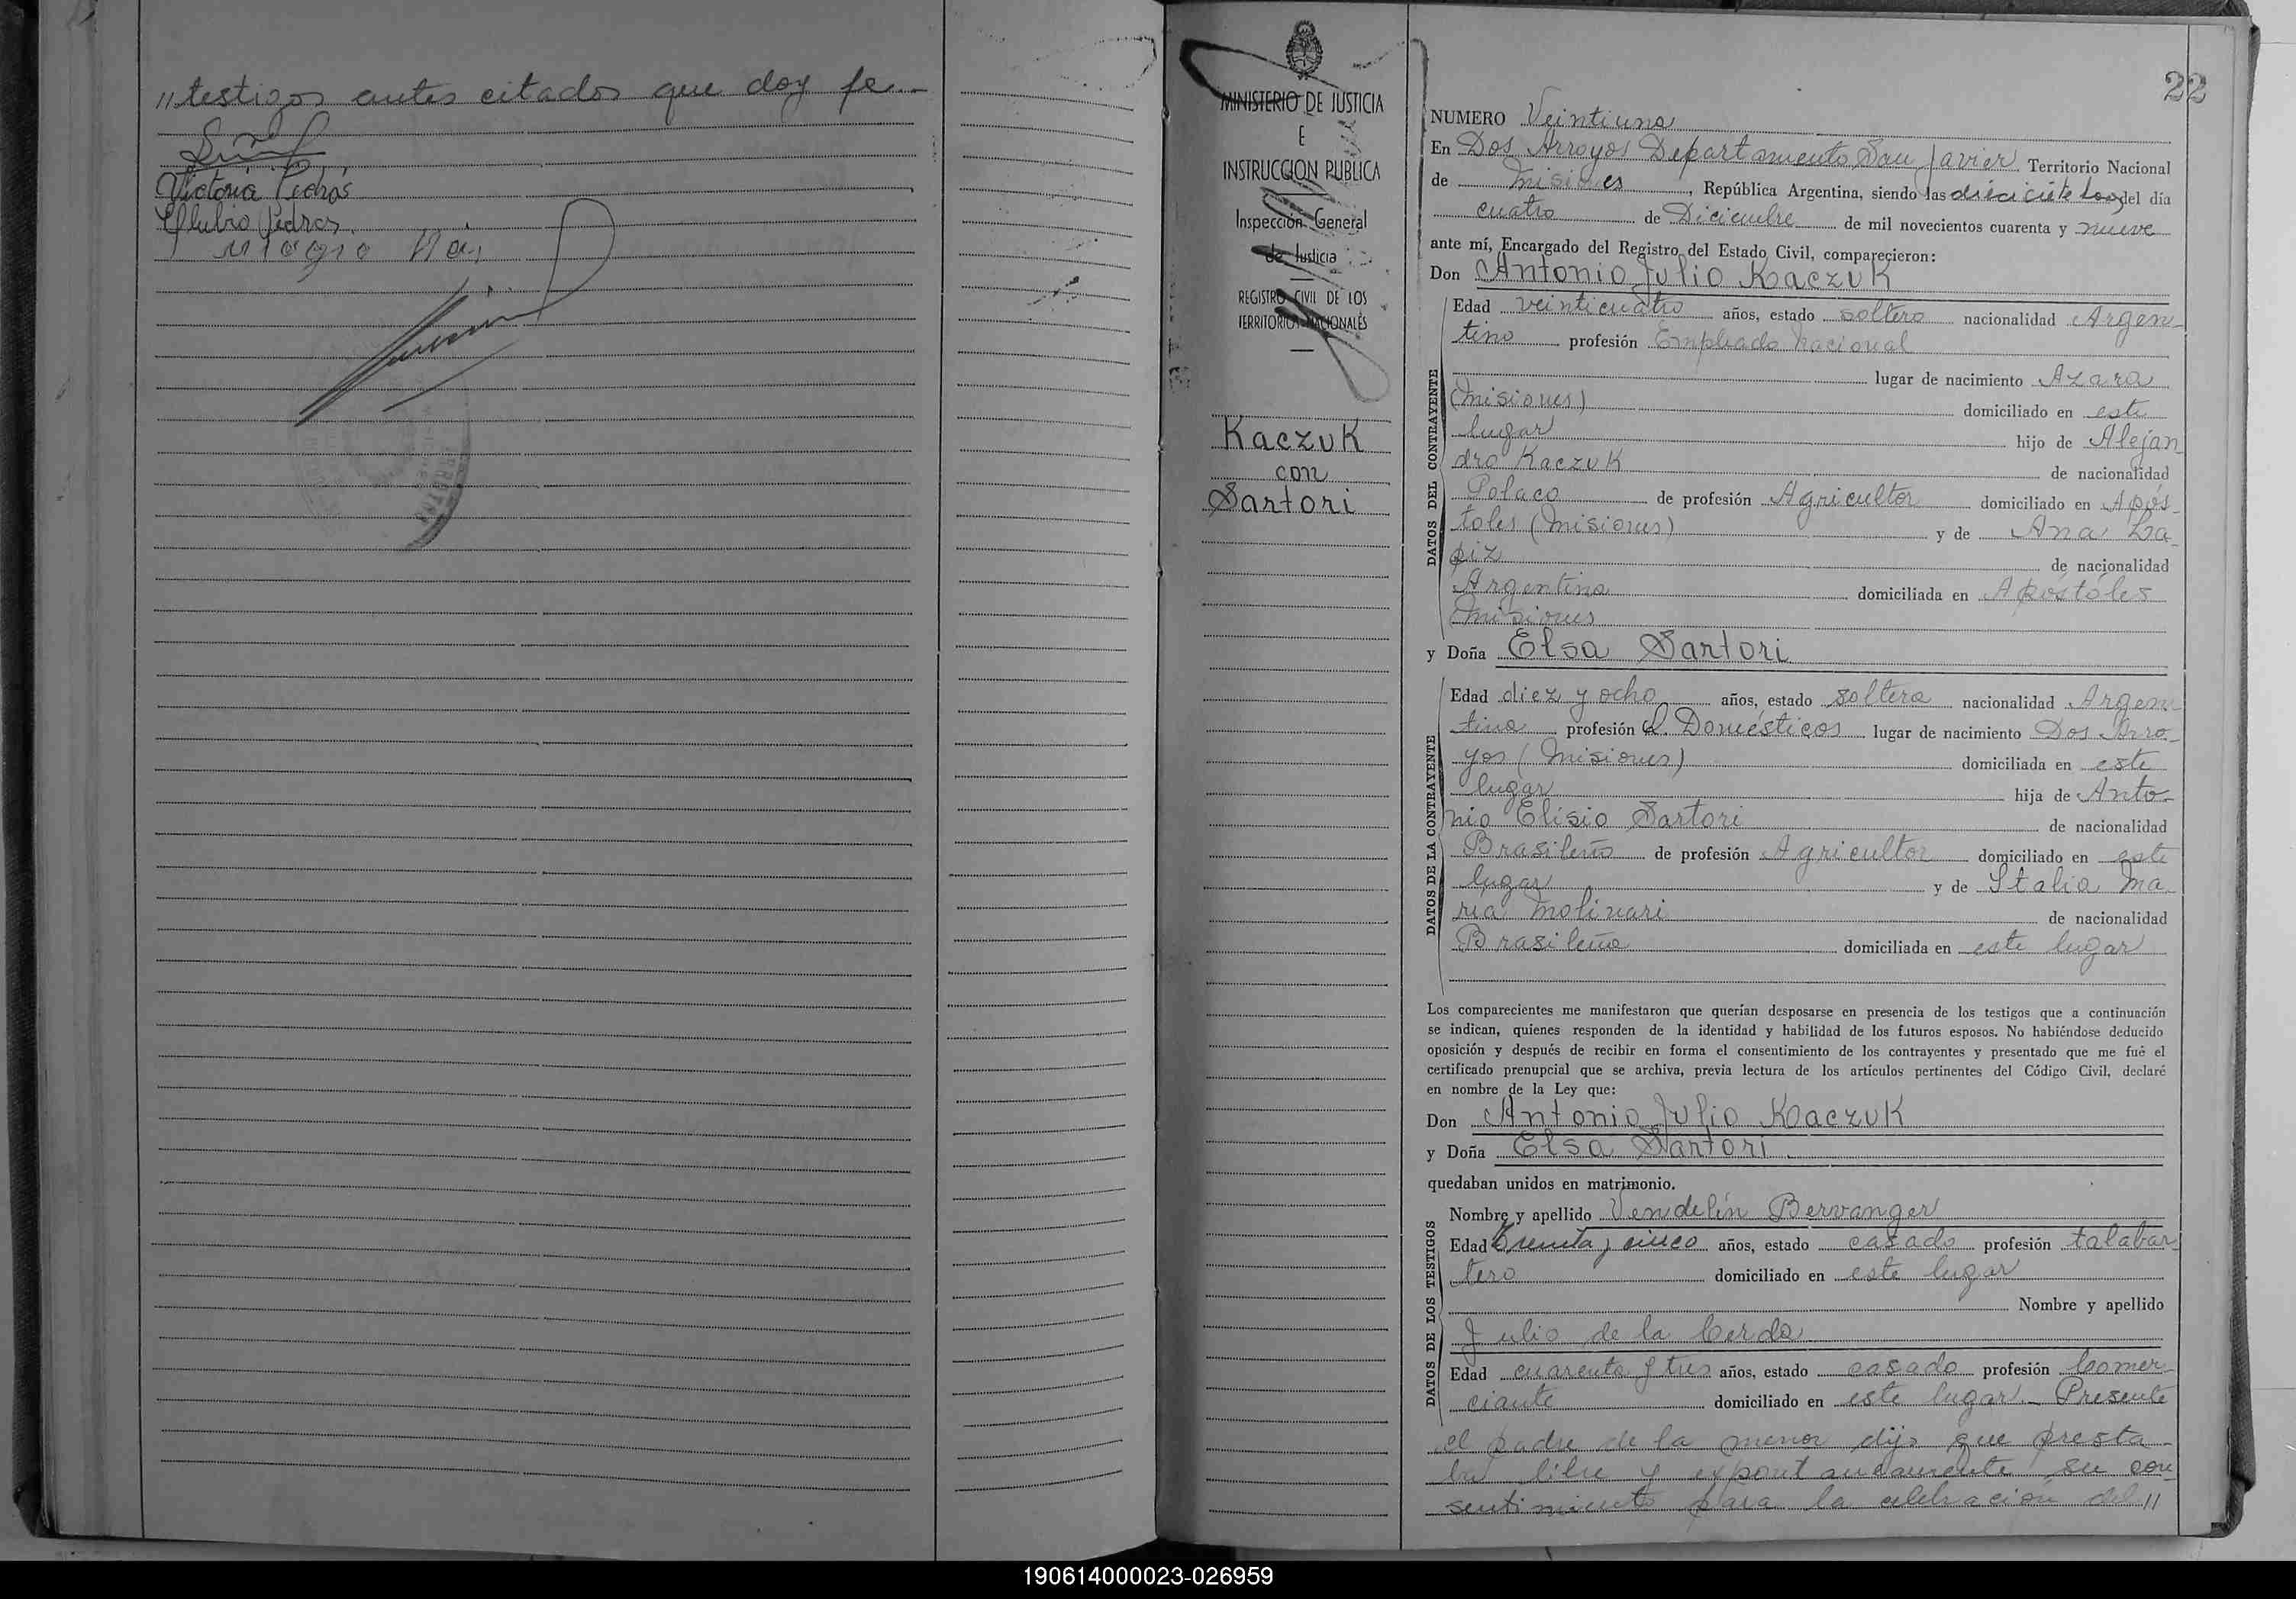 // testigos antes citados que doy fe.-
Victoria Pedros
Pedros
22
MINISTERIO DE JUSTICIA
E
INSTRUCCION PUBLICA
Inspección General
de Justicia
REGISTRO CIVIL DE LOS
TERRITORIOS NACIONALES
Kaczuk
con
Sartori
NUMERO Veintiuno
En Dos Arroyos Departamento San Javier, Territorio Nacional
de Misiones, República Argentina, siendo las diecisiete horas del día
cuatro de Diciembre de mil novecientos cuarenta y nueve
ante mí, Encargado del Registro del Estado Civil, comparecieron:
Don Antonio Julio Kaczuk
DATOS DEL CONTRAYENTE
Edad veinticuatro años, estado soltero nacionalidad Argen-
tino profesión Empleado Nacional
lugar de nacimiento Azara
(Misiones) domiciliado en este
lugar hijo de Alejan
dro Kaczuk de nacionalidad
Polaco de profesión Agricultor domiciliado en Após-
toles (Misiones) y de Ana La-
piz de nacionalidad
Argentina domiciliada en Apóstóles
Misiones
y Doña Elsa Sartori
DATOS DE LA CONTRAYENTE
Edad diez y ocho años, estado soltera nacionalidad Argen
tina profesión Q. Domésticos lugar de nacimiento Dos Arro-
yos (Misiones) domiciliada en este
lugar hija de Anto-
nio Elisio Sartori de nacionalidad
Brasileño de profesión Agricultor domiciliado en este
lugar y de Italia Ma-
ría Molinari de nacionalidad
Brasileña domiciliada en este lugar
Los comparecientes me manifestaron que querían desposarse en presencia de los testigos que a continuación
se indican, quienes responden de la identidad y habilidad de los futuros esposos. No habiéndose deducido
oposición y después de recibir en forma el consentimiento de los contrayentes y presentado que me fué el
certificado prenupcial que se archiva, previa lectura de los artículos pertinentes del Código Civil, declaré
en nombre de la Ley que:
Don Antonio Julio Kaczuk
y Doña Elsa Sartori.
quedaban unidos en matrimonio.
DATOS DE LOS TESTIGOS
Nombre y apellido Vendelín Bervanger
Edad treinta y cinco años, estado casado profesión talabar
tero domiciliado en este lugar
Nombre y apellido
Julio de la Cerda
Edad cuarenta y tres años, estado casado profesión Comer-
ciante domiciliado en este lugar.- Presente
el padre de la menor dijo que presta-
ba libre y expontaneamente su con-
sentimiento para la celebración del //
190614000023-026959